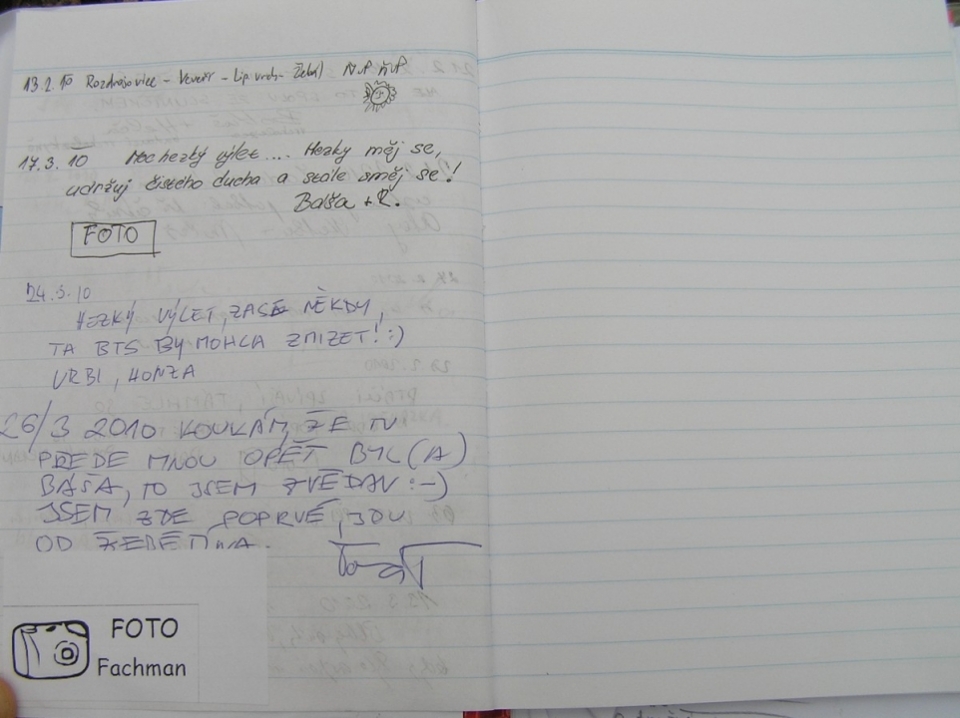 13.2.10 Rozdrojovice - Veveří - Lip. vrch - Žebě)
17.3.10 Moc hezký výlet.... Hezky měj se,
udržuj čistého ducha a stále směj se!
Baša + R.
FOTO
24.3.10
HEZKÝ VÝLET, ZASE NĚKDY,
TA BTS BY MOHLA ZMIZET! :)
VRBI, HONZA
26/3 2010 KOUKÁM, ŽE TU
PŘEDE MNOU OPĚT BYL(A)
BÁŠA, TO JSEM ZVĚDAV :-)
JSEM ZDE POPRVÉ, JDU
OD ŽEBĚTÍNA.
FOTO
Fachman